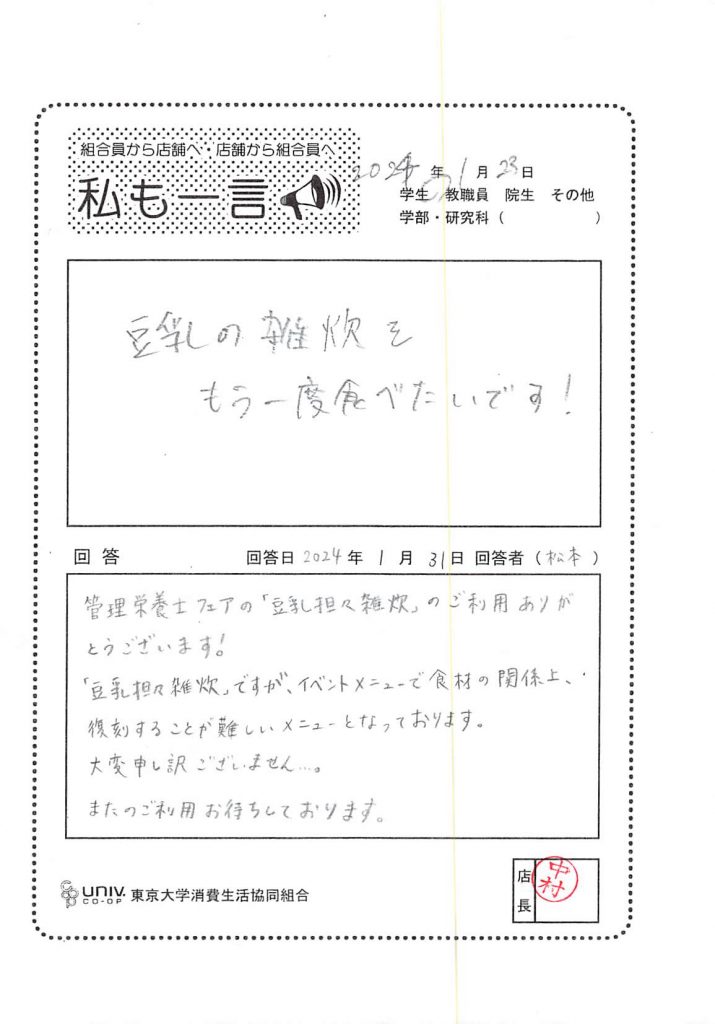 組合員から店舗へ・店舗から組合員へ
私も一言
2024年 1月23日
学生 教職員 院生 その他
学部・研究科( )
豆乳の雑炊を
もう一度食べたいです!
回答 回答日 2024年 1月 31日 回答者(松本)
管理栄養士フェアの「豆乳担々雑炊」のご利用ありが
とうございます!
「豆乳担々雑炊」ですが、イベントメニューで食材の関係上、
復刻することが難しいメニューとなっております。
大変申し訳ございません…。
またのご利用お待ちしております。
UNIV. CO-OP 東京大学消費生活協同組合
店長 中村